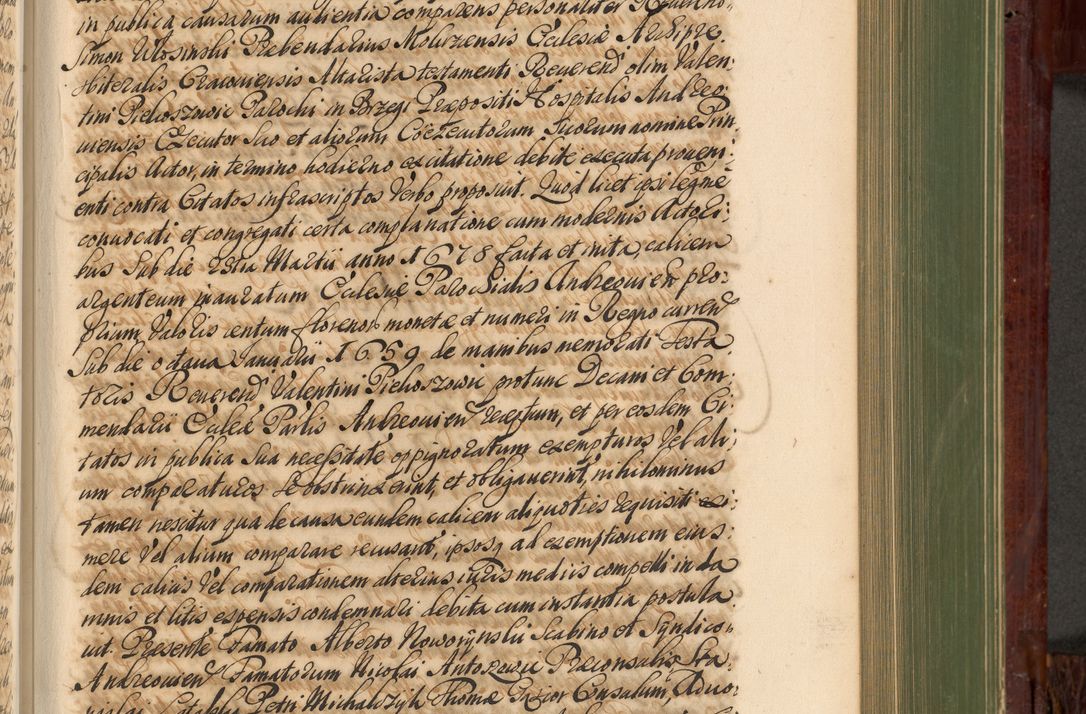 in publica causarum audientia comparens personaliter
Simon Ulosinski Præbendarius Molurzensis Ecclesiæ Archipre,
sbiteralis Cracoviensis Altarista testamenti Reverend olim Valen:
tini Pielioszowic Parochi in Brzegi Præpositi Hospitalis Andreo:
viensis Executor suo et aliorum Coexecutorum suorum nomine Prin
cipalis Actor, in termino hodierno ex citatione debite executa proveni:
enti contra Citatos infrascriptos Verbo proposuit. Quod licet ipsi legitime
convocati et congregati certa complanatione cum modernis Actori:
bus sub die Martii anno 1678 facta et inita, calicem
argenteum inauratum Ecclesiæ Parochialis Andreovien pro:
prium, valoris centum florenor monetæ et numeri in Regno curren
sub die octava Januarii 1659 de manibus memorati Testa
toris Reverend Valentini Pielioszowic protunc Decani et Com:
mendarii Ecclæ Parlis Andreovien receptum, et per eosdem Ci:
tatos in publica sua necessitate oppignoratum exempturos Vel ali:
um comparaturos se obstrinxerint, et obligaverint, nihilominus
tamen nescitur qua de causa eundem calicem aliquoties requisiti exi:
mere Vel alium comparare recusant, ipsosq ad exemptionem eius:
dem calicis Vel comparationem alterius iuris mediis compelli in da
mnis et litis expensis condemnari debita cum instantia postula
vit. Presente Famato Alberto Noworynski Scabino et Syndico
Andreovien Famatorum Nicolai Proconsulis Sta:
Petri Michalczyk Thomæ Consulum,